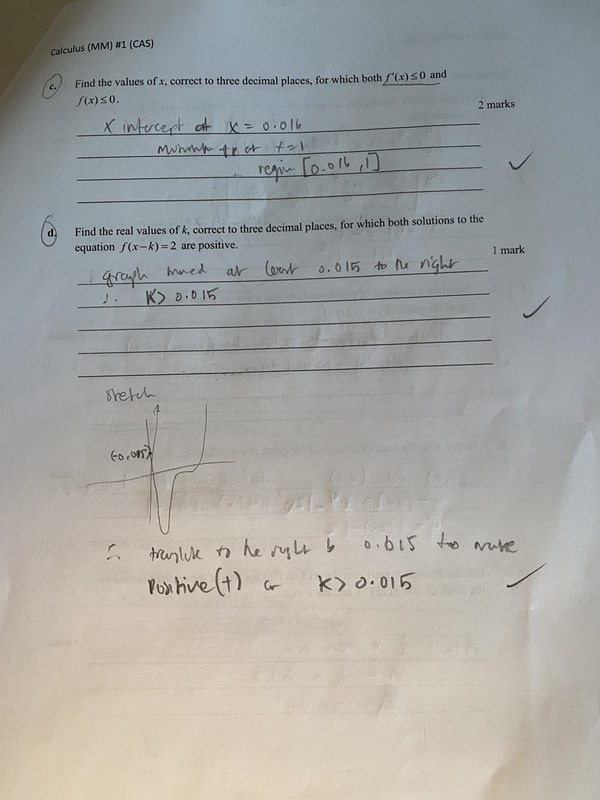 Calculus (MM) #1 (CAS)
c. Find the values of x, correct to three decimal places, for which both f'(x) ≤ 0 and
f(x) ≤ 0.
2 marks
x intercept at x = 0.016
at x=1
region [0.016, 1]
d. Find the real values of k, correct to three decimal places, for which both solutions to the
equation f(x−k) = 2 are positive.
1 mark
graph moved at least 0.015 to the right
∴ K > 0.015
sketch
(-0.015)
∴ translate to the right by 0.015 to make
Positive (+) or K > 0.015